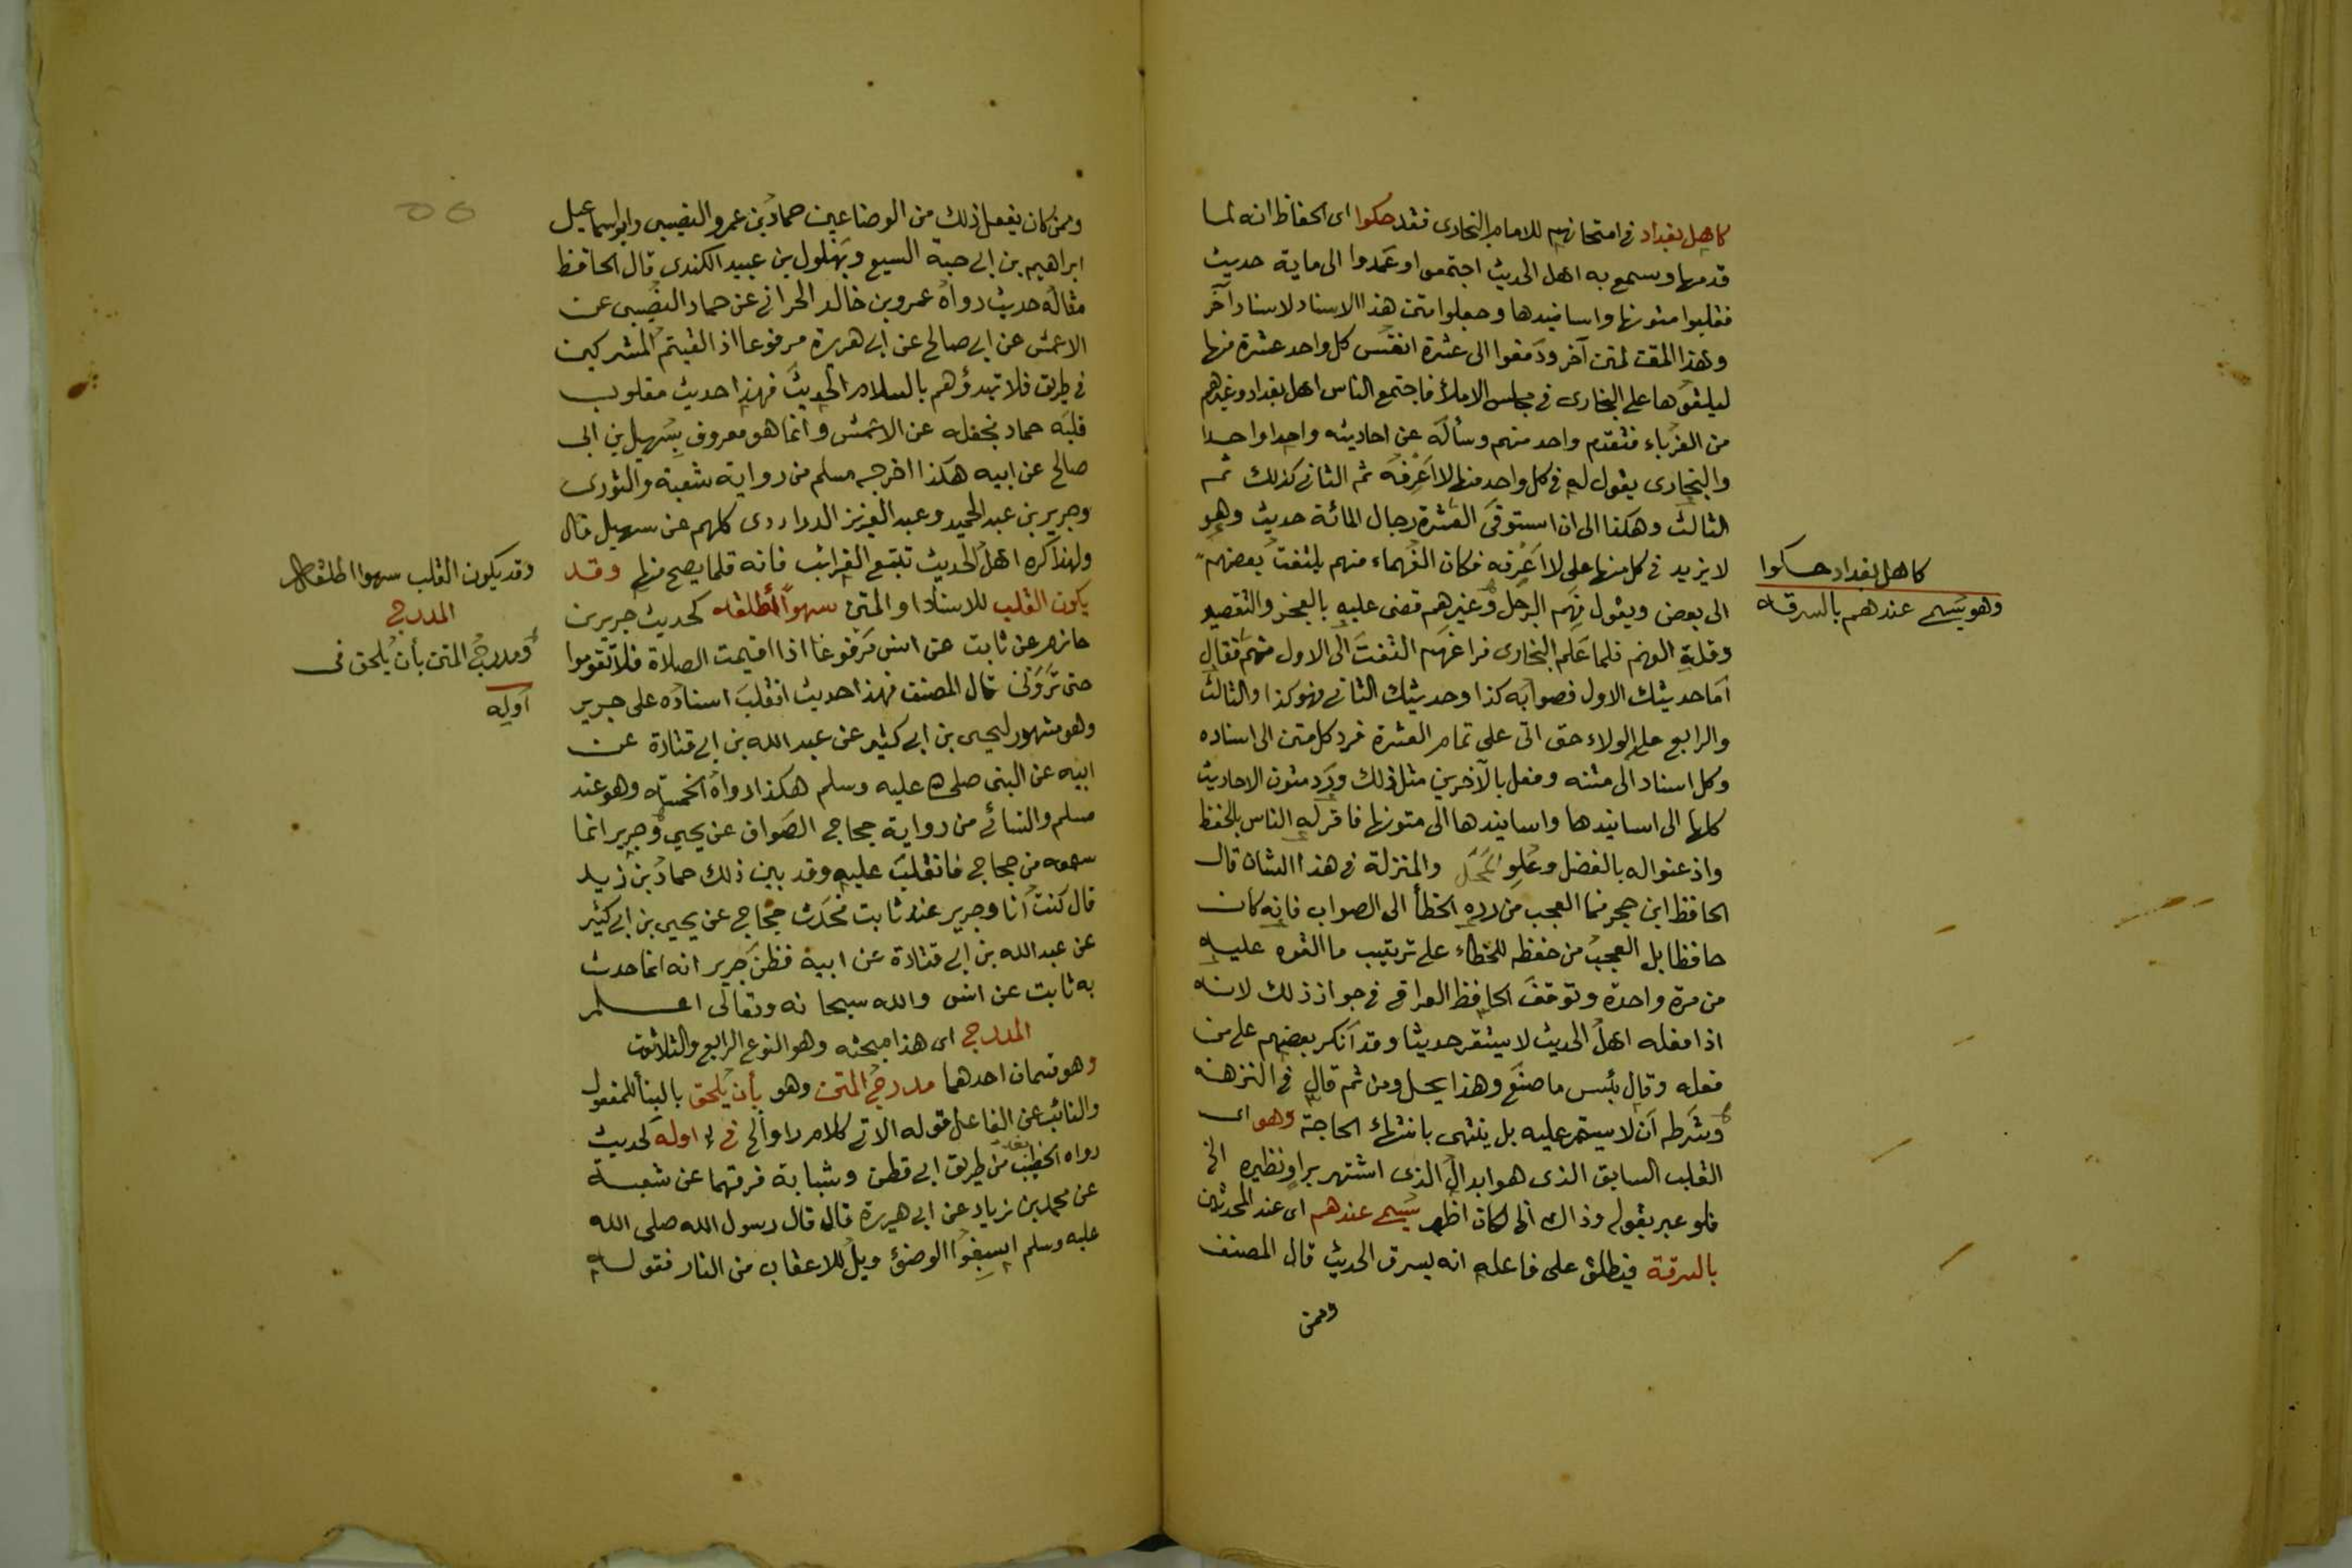 كاهل بغداد في امتحانهم للامام البخارى فقد حكوا اى الحفاظ انه لما
قدمها وسمع به اهل الحديث اجتمعوا وعمدوا الى ماية حديث
فقلبوا متونها واسانيدها وجعلوا متن هذا الاسناد لاسناد آخر
وهذا المتن لمتن آخر ودفعوا الى عشرة انفس كل واحد عشرة منها
ليلقوها على البخارى في مجلس الاملأ فاجتمع الناس اهل بغداد وغيرهم
من الغرباء فتقدم واحد منهم وسأله عن احاديثه واحدا واحدا
والبخارى يقول له في كل واحد منها لا اعرفه ثم الثانى كذلك ثم
الثالث وهكذا الى ان استوفى العشرة رجال المائة حديث وهو
لا يزيد في كل منها على لا اعرفه فكان الفهماء منهم يلتفت بعضهم
الى بعض ويقول فهم الرجل وغيرهم قضى عليه بالعجز والتقصير
وقلة الفهم فلما علم البخارى فراغهم التفت الى الاول منهم فقال
اما حديثك الاول فصوابه كذا وحديثك الثانى فهو كذا والثالث
والرابع على الولاء حتى اتى على تمام العشرة فرد كل متن الى اسناده
وكل اسناد الى متنه وفعل بالآخرين مثل ذلك ورد متون الاحاديث
كلها الى اسانيدها واسانيدها الى متونها فاقر له الناس بالحفظ
واذعنوا له بالفضل وعلو المحل والمنزلة في هذا الشان قال
الحافظ ابن حجر فما العجب من رده الخطأ الى الصواب فانه كان
حافظا بل العجب من حفظه للخطاء على ترتيب ما القوه عليه
من مرة واحدة وتوقف الحافظ العراقى في جواز ذلك لانه
اذا فعله اهل الحديث لا يستقر حديثا وقد انكر بعضهم على من
فعله وقال بئس ما صنع وهذا يحل ومن ثم قال في النزهة
وشرطه ان لا يستمر عليه بل ينتهى بانتهاء الحاجة وهو اى
القلب السابق الذى هو ابدال الذى اشتهر براو نظيره الخ
فلو عبر بقوله وذاك الخ لكان اظهر يسمى عندهم اى عند المحدثين
بالسرقة فيطلق على فاعله انه يسرق الحديث قال المصنف
وممن
كاهل بغداد حكوا
وهو يسمى عندهم بالسرقه
وممن كان يفعل ذلك من الوضاعين حماد بن عمرو النصيبى وابو اسماعيل
ابراهيم بن ابى حية اليسع وبهلول بن عبيد الكندى قال الحافظ
مثاله حديث رواه عمرو بن خالد الحرانى عن حماد النصيبى عن
الاعمش عن ابى صالح عن ابى هريرة مرفوعا اذا لقيتم المشركين
في طريق فلا تبدؤهم بالسلام الحديث فهذا حديث مقلوب
قلبه حماد فجعله عن الاعمش وانما هو معروف بسهيل بن ابى
صالح عن ابيه هكذا اخرجه مسلم من رواية شعبة والثورى
وجرير بن عبد الحميد وعبد العزيز الدراوردى كلهم عن سهيل قال
ولهذا كره اهل الحديث تتبع الغرائب فانه قلما يصح منها وقد
يكون القلب للاسناد او المتن سهوا اطلقه كحديث جرير بن
حازم عن ثابت عن انس مرفوعا اذا اقيمت الصلاة فلا تقوموا
حتى تروني قال المصنف فهذا حديث انقلب اسناده على جرير
وهو مشهور ليحيى بن ابى كثير عن عبد الله بن ابى قتادة عن
ابيه عن النبى صلى الله عليه وسلم هكذا رواه الخمسة وهو عند
مسلم والنسائى من رواية حجاج الصواف عن يحيى وجرير انما
سمعه من حجاج فانقلب عليه وقد بين ذلك حماد بن زيد
قال كنت انا وجرير عند ثابت فحدث حجاج عن يحيى بن ابى كثير
عن عبد الله بن ابى قتادة عن ابيه فظن جرير انه انما حدث
به ثابت عن انس والله سبحانه وتعالى اعلم
المدرج اى هذا مبحثه وهو النوع الرابع والثلاثون
وهو قسمان احدهما مدرج المتن وهو بأن يلحق بالبنأ للمفعول
والنائب عن الفاعل قوله الاتى كلام راو الخ في اوله كحديث
رواه الخطيب من طريق ابى قطن وشبابة فرقهما عن شعبة
عن محمد بن زياد عن ابى هريرة قال قال رسول الله صلى الله
عليه وسلم اسبغوا الوضوء ويل للاعقاب من النار فقوله
وقد يكون القلب سهوا اطلقه
المدرج
ومدرج المتن بأن يلحق فى
اوله